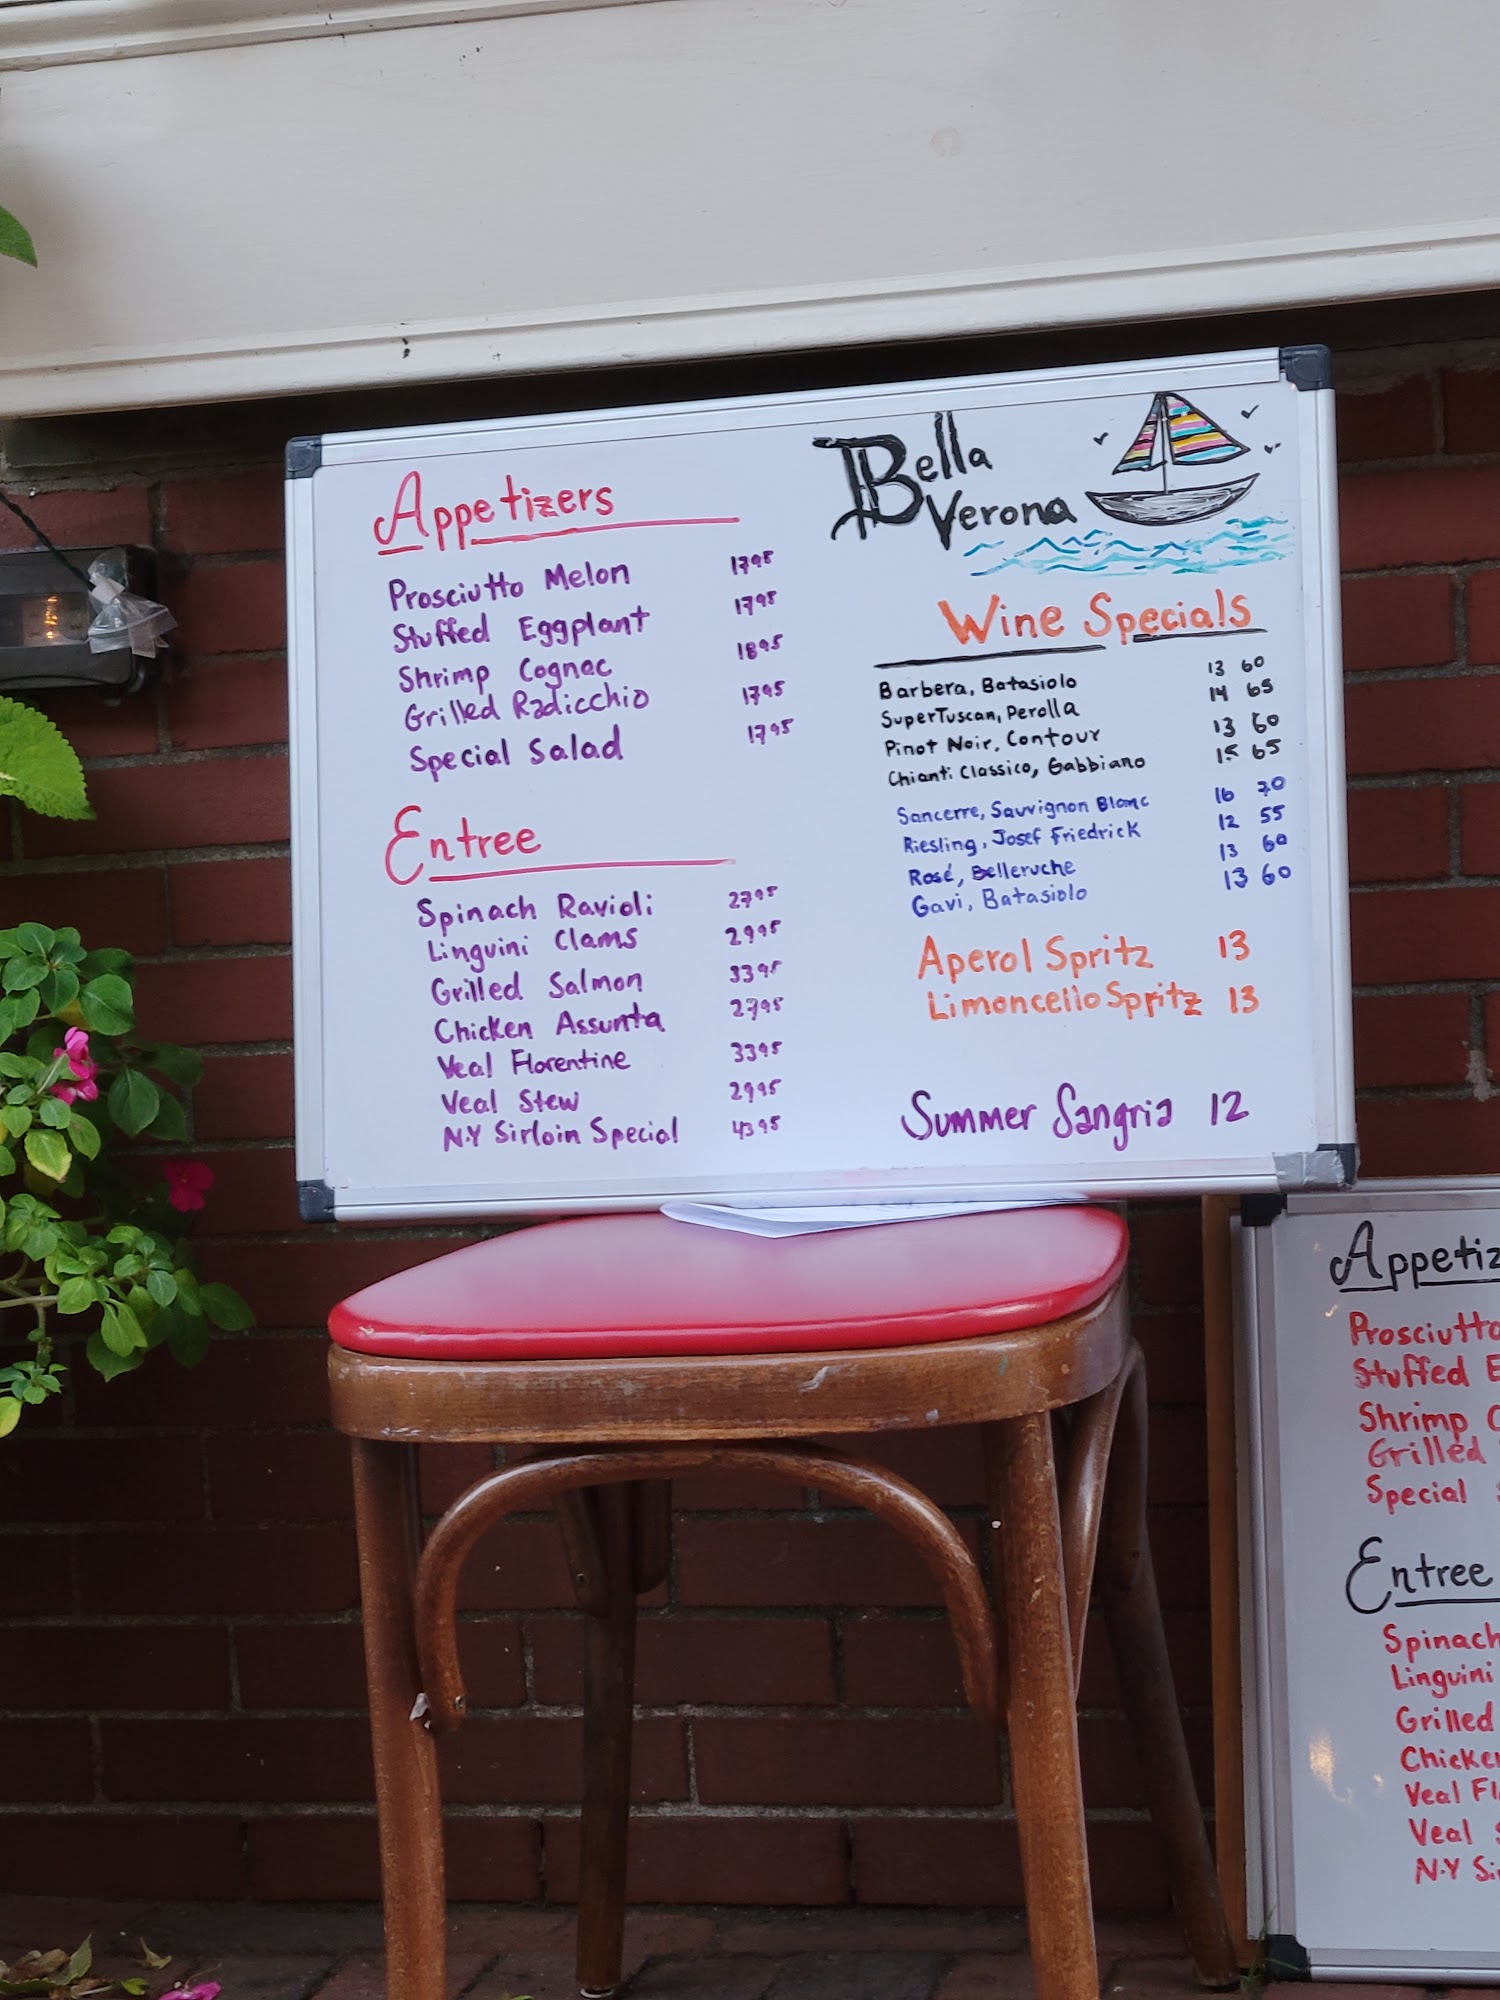 Appetizers
Prosciutto Melon 1795
Stuffed Eggplant 1795
Shrimp Cognac 1895
Grilled Radicchio 1795
Special Salad 1795
Entree
Spinach Ravioli 2795
Linguini Clams 2995
Grilled Salmon 3395
Chicken Assunta 2795
Veal Florentine 3395
Veal Stew 2995
N.Y Sirloin Special 4395
Bella
Verona
Wine Specials
Barbera, Batasiolo 13 60
SuperTuscan, Perolla 14 65
Pinot Noir, Contour 13 60
Chianti Classico, Gabbiano 15 65
Sancerre, Sauvignon Blanc 16 70
Riesling, Josef Friedrick 12 55
Rosé, Belleruche 13 60
Gavi, Batasiolo 13 60
Aperol Spritz 13
Limoncello Spritz 13
Summer Sangria 12
Appetiz
Prosciutto
Stuffed E
Shrimp C
Grilled
Special
Entree
Spinach
Linguini
Grilled
Chicken
Veal Fl
Veal S
N.Y Si